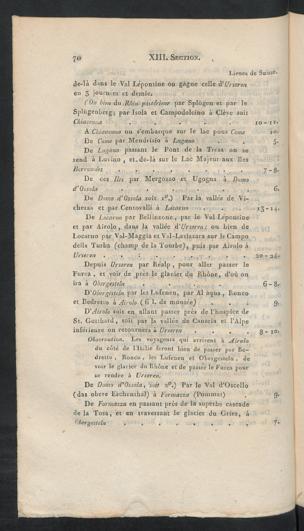 70 XIII. Section.
Lieues de Suisse.
de-là dans le Val Lépontine on gagne celle d'Urseren
en 3 journées et demie.
(Ou bien du Rhin postérieur par Splügen et par le
Splügenberg; par Isola et Campodolcino à Clève soit
Chiavenna . . . . . 10-12.
A Chiavenna on s'embarque sur le lac pour Come 10.
De Come par Mendrisio à Lugano . . . 5.
De Lugano passant le Pont de la Tresa on se
rend à Luvino, et de-là sur le Lac Majeur aux Iles
Borromées . . . . . 7-8.
De ces Iles par Mergozzo et Ugogna à Domo
d'Ossola . . . . . 6.
De Domo d'Ossola soit 1°.) Par la vallée de Vi-
chezzo et par Centovalli à Locarno . . 13-14.
De Locarno par Bellinzone, par le Val Lépontine
et par Airolo, dans la vallée d'Urseren; ou bien de
Locarno par Val-Maggia et Val-Lavizzara sur le Campo
della Turba (champ de la Tourbe), puis par Airolo à
Urseren . . . . . 20-24.
Depuis Urseren par Réalp, pour aller passer le
Furca, et voir de près le glacier du Rhône, d'où on
ira à Obergesteln . . . . 6-8.
D'Obergesteln par les Lufenen, par Al aqua, Ronco
et Bedretto à Airolo (6 l. de montée) . . 9.
D'Airolo soit en allant passer près de l'hospice de
St. Gotthard, soit par la vallée de Canaria et l'Alpe
inférieure on retournera à Urseren . . 8-10.
Observation. Les voyageurs qui arrivent à Airolo
du côté de l'Italie feront bien de passer par Be-
dretto, Ronco, les Lufenen et Obergesteln, de
voir le glacier du Rhône et de passer le Furca pour
se rendre à Urseren.
De Domo d'Ossola, soit 2°.) Par le Val d'Oscello
(das obere Eschenthal) à Formazza (Pommat) 9.
De Formazza en passant près de la superbe cascade
de la Tosa, et en traversant le glacier du Gries, à
Obergesteln . . . . . 7.